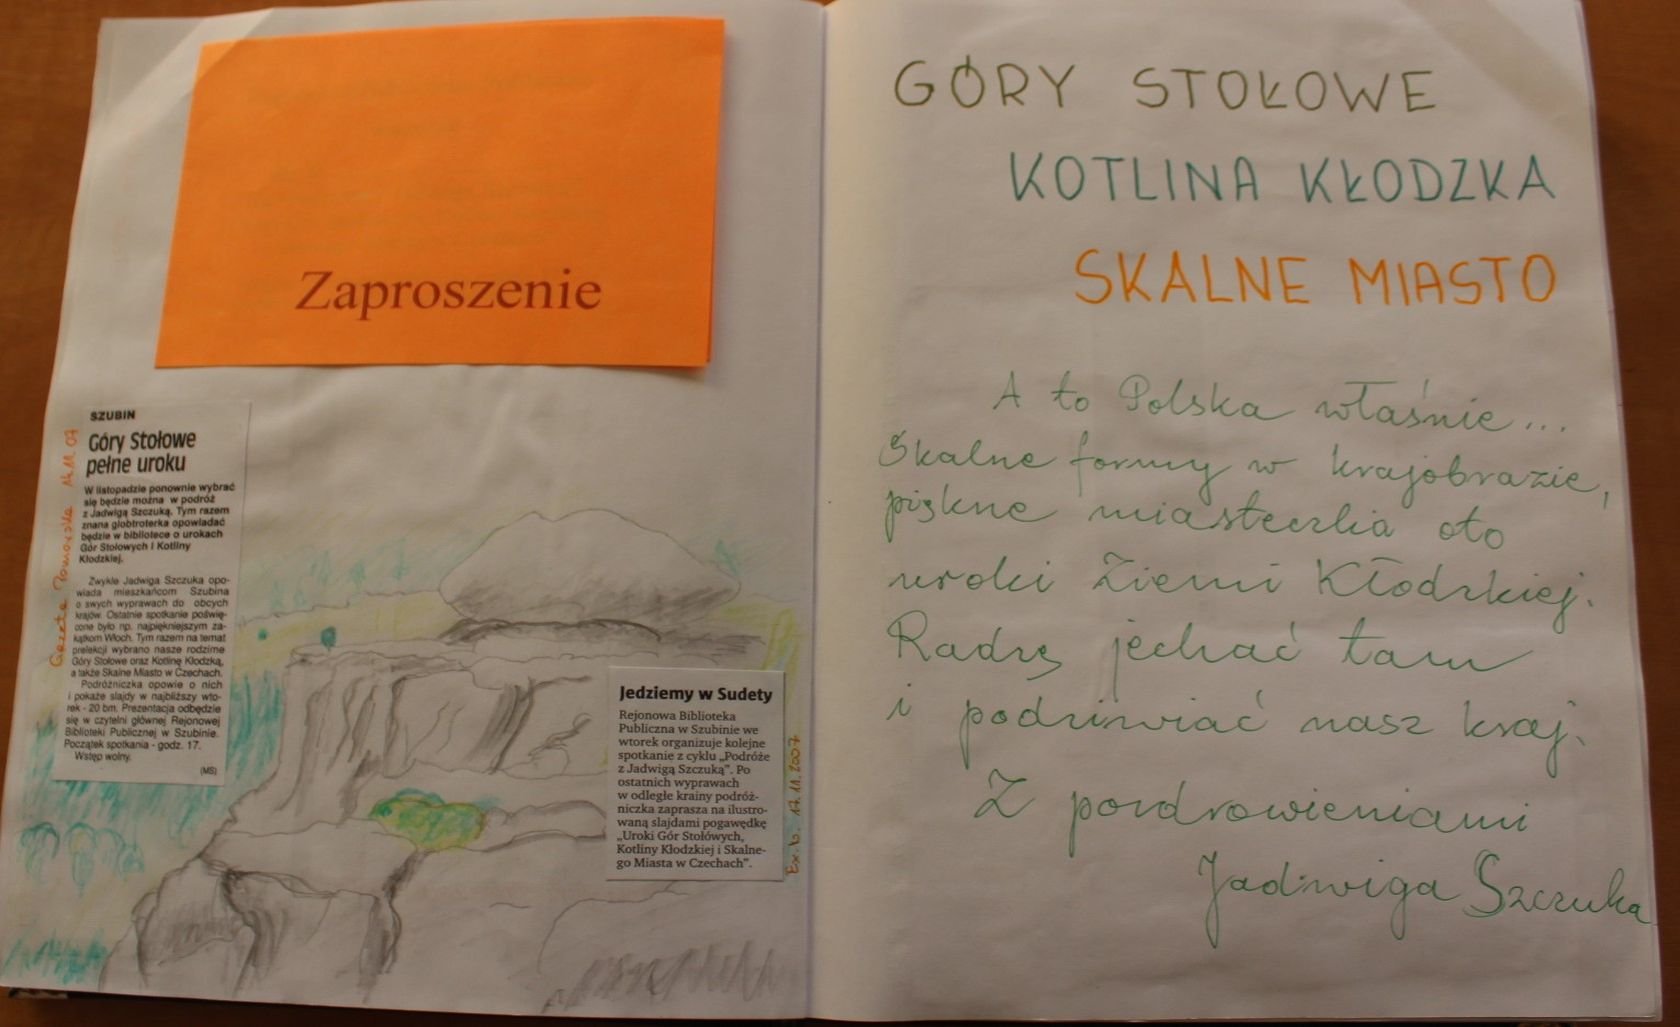 Zaproszenie
SZUBIN
Góry Stołowe
pełne uroku
W listopadzie ponownie wybrać
się będzie można w podróż
z Jadwigą Szczuką. Tym razem
znana globtroterka opowiadać
będzie w bibliotece o urokach
Gór Stołowych i Kotliny
Kłodzkiej.
Zwykle Jadwiga Szczuka opo-
wiada mieszkańcom Szubina
o swych wyprawach do obcych
krajów. Ostatnie spotkanie poświę-
cone było np. najpiękniejszym za-
kątkom Włoch. Tym razem na temat
prelekcji wybrano nasze rodzime
Góry Stołowe oraz Kotlinę Kłodzką,
a także Skalne Miasto w Czechach.
Podróżniczka opowie o nich
i pokaże slajdy w najbliższy wto-
rek - 20 bm. Prezentacja odbędzie
się w czytelni głównej Rejonowej
Biblioteki Publicznej w Szubinie.
Początek spotkania - godz. 17.
Wstęp wolny.
(MS)
Gazeta Pomorska 14.11.07
Jedziemy w Sudety
Rejonowa Biblioteka
Publiczna w Szubinie we
wtorek organizuje kolejne
spotkanie z cyklu „Podróże
z Jadwigą Szczuką”. Po
ostatnich wyprawach
w odległe krainy podróż-
niczka zaprasza na ilustro-
waną slajdami pogawędkę
„Uroki Gór Stołówych,
Kotliny Kłodzkiej i Skalne-
go Miasta w Czechach”.
Ex. b. 17.11.2007
GÓRY STOŁOWE
KOTLINA KŁODZKA
SKALNE MIASTO
A to Polska właśnie...
Skalne formy w krajobrazie,
piękne miasteczka oto
uroki Ziemi Kłodzkiej.
Radzę jechać tam
i podziwiać nasz kraj.
Z pozdrowieniami
Jadwiga Szczuka